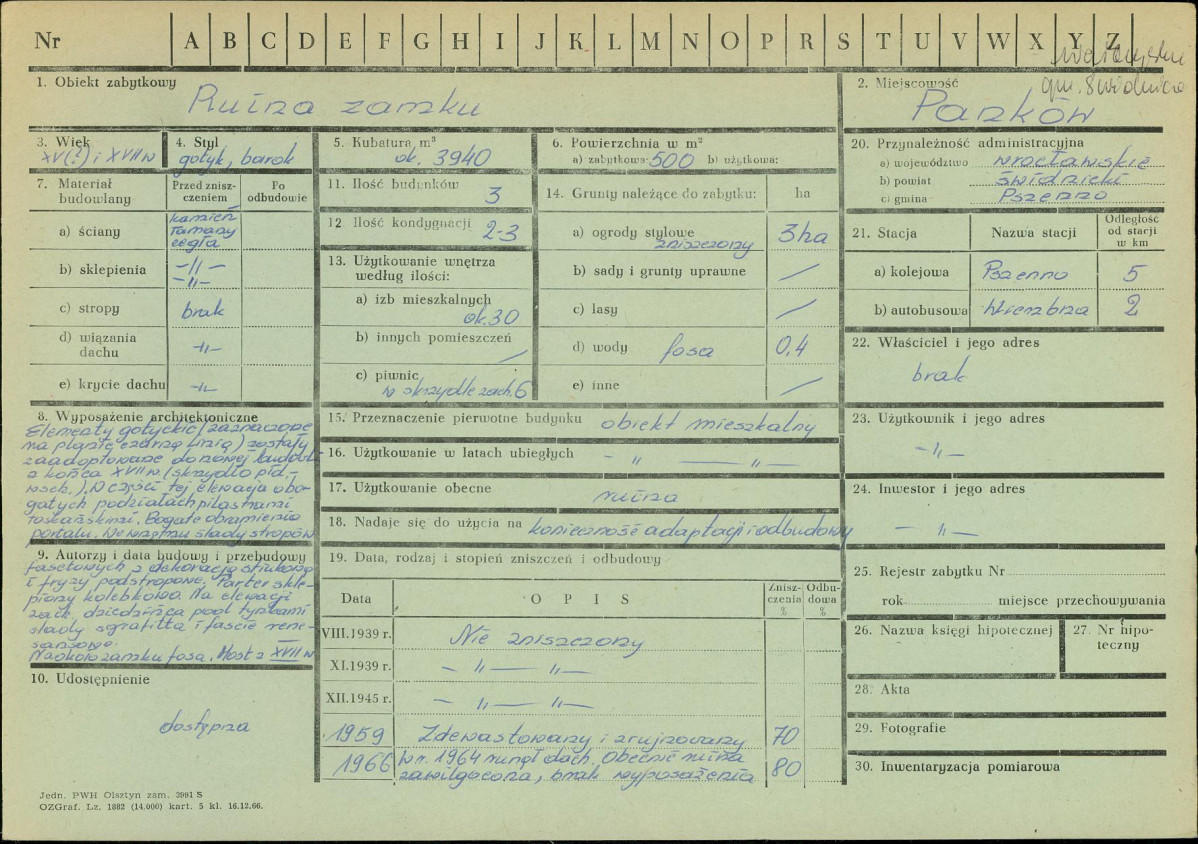 Nr A B C D E F G H I J K L M N O P R S T U V W X Y Z
gm. Świdnica
1. Obiekt zabytkowy
Ruina zamku
2. Miejscowość
Panków
3. Wiek
XV(?) i XVII w
4. Styl
gotyk, barok
5. Kubatura m³
ok. 3940
6. Powierzchnia w m²
a) zabytkowa: 500 b) użytkowa:
20. Przynależność administracyjna
a) województwo wrocławskie
b) powiat świdnicki
c) gmina Pszenno
7. Materiał budowlany
Przed zniszczeniem
Po odbudowie
a) ściany kamień
łamany
cegła
b) sklepienia —„—
—„—
c) stropy brak
d) wiązania dachu —„—
e) krycie dachu —„—
11. Ilość budynków 3
12. Ilość kondygnacji 2-3
13. Użytkowanie wnętrza
według ilości:
a) izb mieszkalnych
ok. 30
b) innych pomieszczeń /
c) piwnic
w skrzydle zach. 6
14. Grunty należące do zabytku: ha
a) ogrody stylowe
zniszczony 3 ha
b) sady i grunty uprawne /
c) lasy /
d) wody fosa 0,4
e) inne /
21. Stacja Nazwa stacji
Odległość
od stacji
w km
a) kolejowa Pszenno 5
b) autobusowa Wierzbna 2
22. Właściciel i jego adres
brak
8. Wyposażenie architektoniczne
Elementy gotyckie (zaznaczone
na planie czarną linią) zostały
zaadoptowane do nowej budowli
z końca XVII w (skrzydło płd.-
wsch.). W części tej elewacja bo-
gatych podziałach pilastrami
toskańskimi. Bogate obramienia
portalu. Wewnątrz ślady stropów
9. Autorzy i data budowy i przebudowy
fasetowych z dekoracją stiukową
i fryzy podstropowe. Parter skle-
piony kolebkowo. Na elewacji
zach. dziedzińca pod tynkami
ślady sgrafitta i fascie rene-
sansowe.
Naokoło zamku fosa. Most z XVII w
10. Udostępnienie
dostępna
15. Przeznaczenie pierwotne budynku obiekt mieszkalny
16. Użytkowanie w latach ubiegłych — „ — „ —
17. Użytkowanie obecne ruina
18. Nadaje się do użycia na konieczność adaptacji i odbudowy
19. Data, rodzaj i stopień zniszczeń i odbudowy
Data O P I S
Zniszczenia %
Odbudowa %
VIII.1939 r. Nie zniszczony
XI.1939 r. — „ — „ —
XII.1945 r. — „ — „ —
1959 Zdewastowany i zrujnowany 70
1966 W r. 1964 runął dach. Obecnie ruina
zawilgocona, brak wyposażenia 80
23. Użytkownik i jego adres
—„—
24. Inwestor i jego adres
— „ —
25. Rejestr zabytku Nr
rok miejsce przechowywania
26. Nazwa księgi hipotecznej
27. Nr hipoteczny
28. Akta
29. Fotografie
30. Inwentaryzacja pomiarowa
Jedn. PWH Olsztyn zam. 3991 S
OZGraf. Lz. 1882 (14.000) kart. 5 kl. 16.12.66.